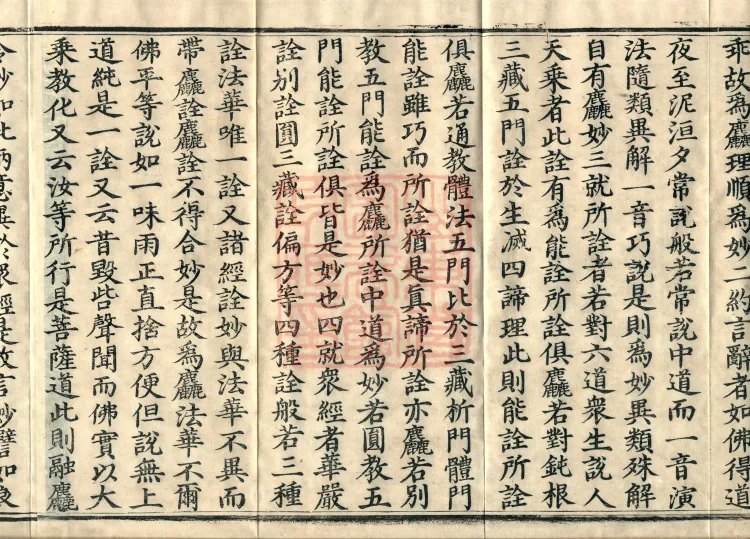 乖故為麤理順為妙二約言辭者如佛得道
夜至泥洹夕常說般若常說中道而一音演
法隨類異解一音巧說是則為妙異類殊解
自有麤妙三就所詮者若對六道衆生說人
天乘者此詮有為能詮所詮俱麤若對鈍根
三藏五門詮於生滅四諦理此則能詮所詮
俱麤若通教體法五門比於三藏析門體門
能詮雖巧而所詮猶是真諦所詮亦麤若別
教五門能詮為麤所詮中道為妙若圓教五
門能詮所詮俱皆是妙也四就衆經者華嚴
詮別詮圓三藏詮偏方等四種詮般若三種
詮法華唯一詮又諸經詮妙與法華不異而
帶麤詮麤詮不得合妙是故為麤法華不爾
佛平等說如一味雨正直捨方便但說無上
道純是一詮又云昔毀呰聲聞而佛實以大
乘教化又云汝等所行是菩薩道此則融麤